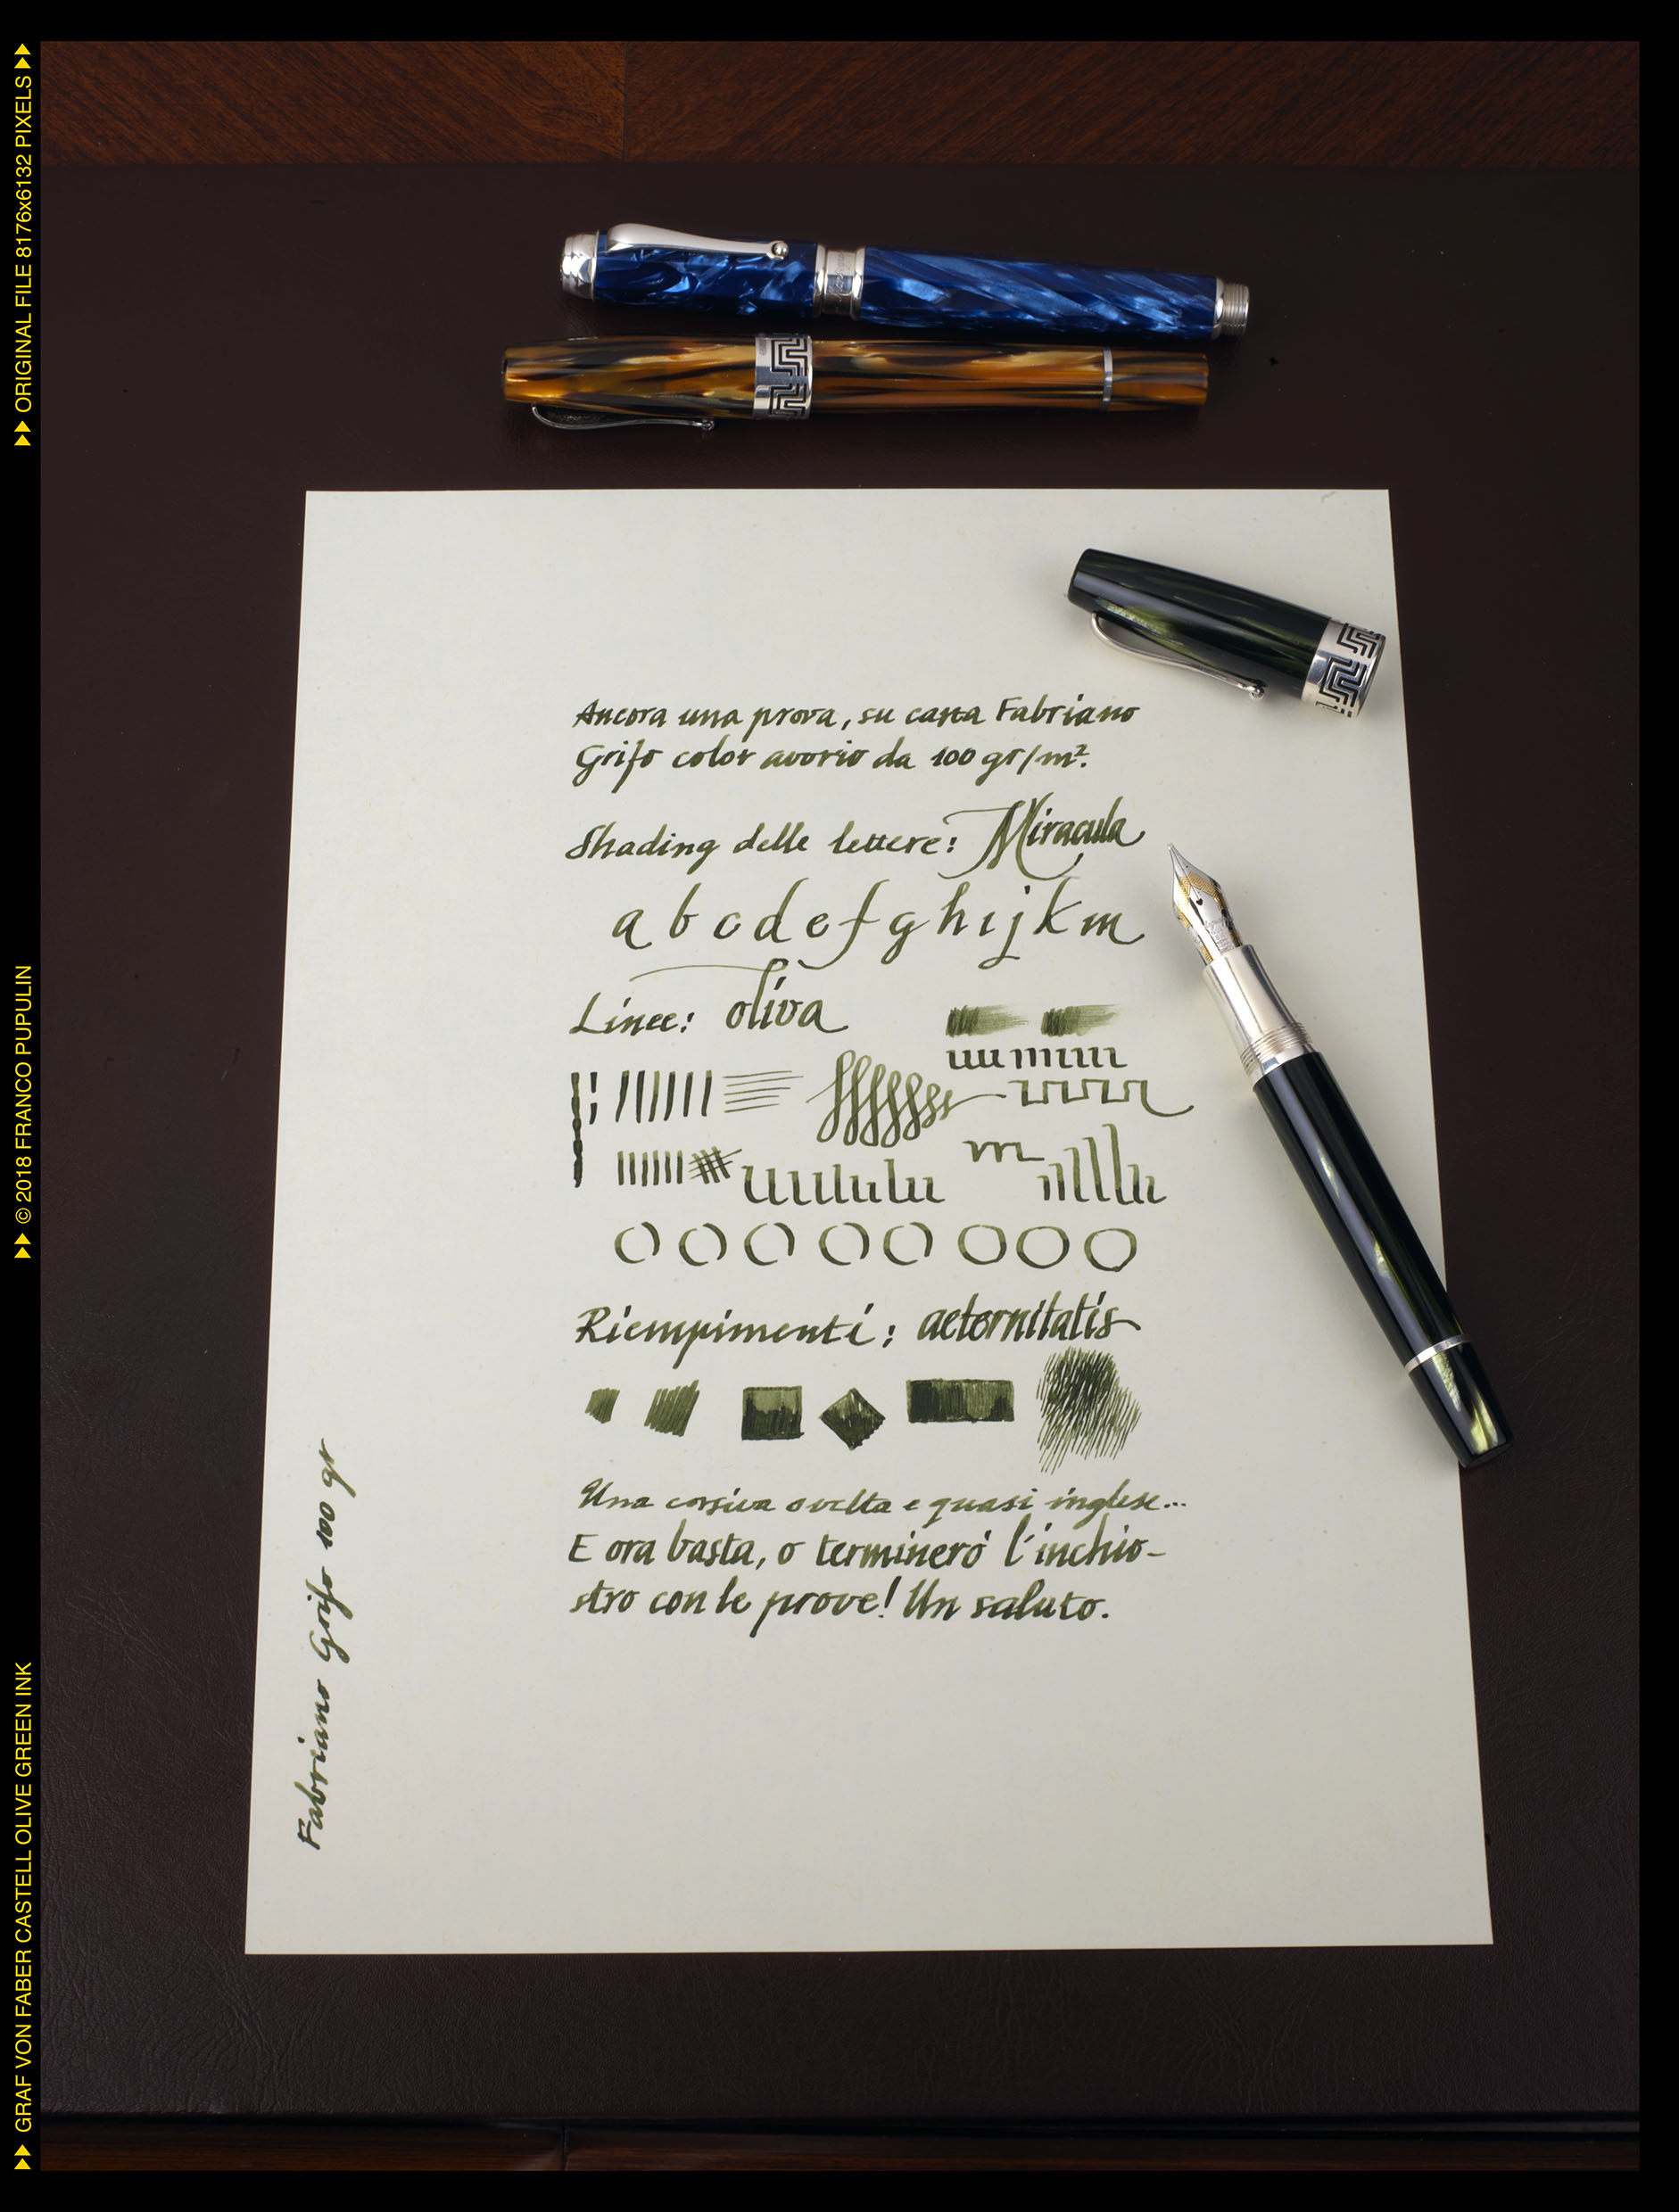 Ancora una prova, su carta Fabriano
Grifo color avorio da 100 gr/m².
Shading delle lettere: Miracula
a b c d e f g h i j k m
Linee: oliva
Riempimenti: aeternitatis
Una corsiva svelta e quasi inglese...
E ora basta, o terminerò l'inchio-
stro con le prove! Un saluto.
Fabriano Grifo 100 gr
ORIGINAL FILE 8176x6132 PIXELS
© 2018 FRANCO PUPULIN
GRAF VON FABER CASTELL OLIVE GREEN INK